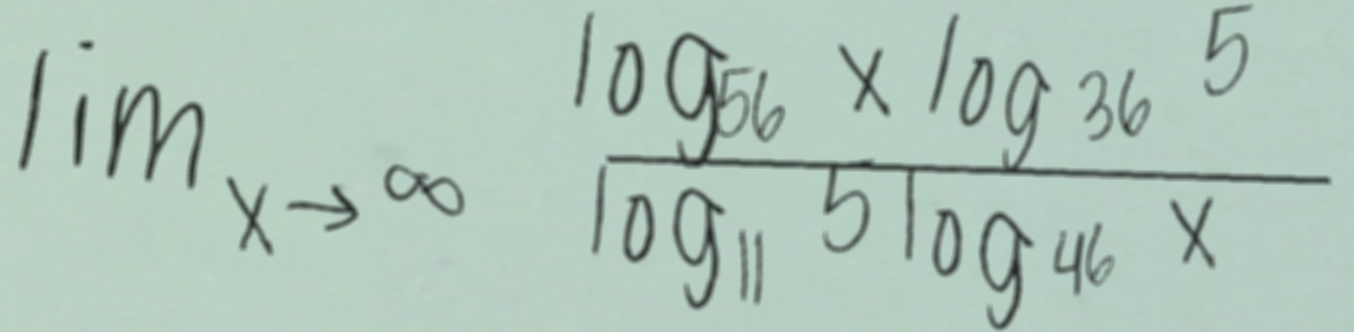 lim x→∞ log₅₆ x log₃₆ 5 / log₁₁ 5 log₄₆ x